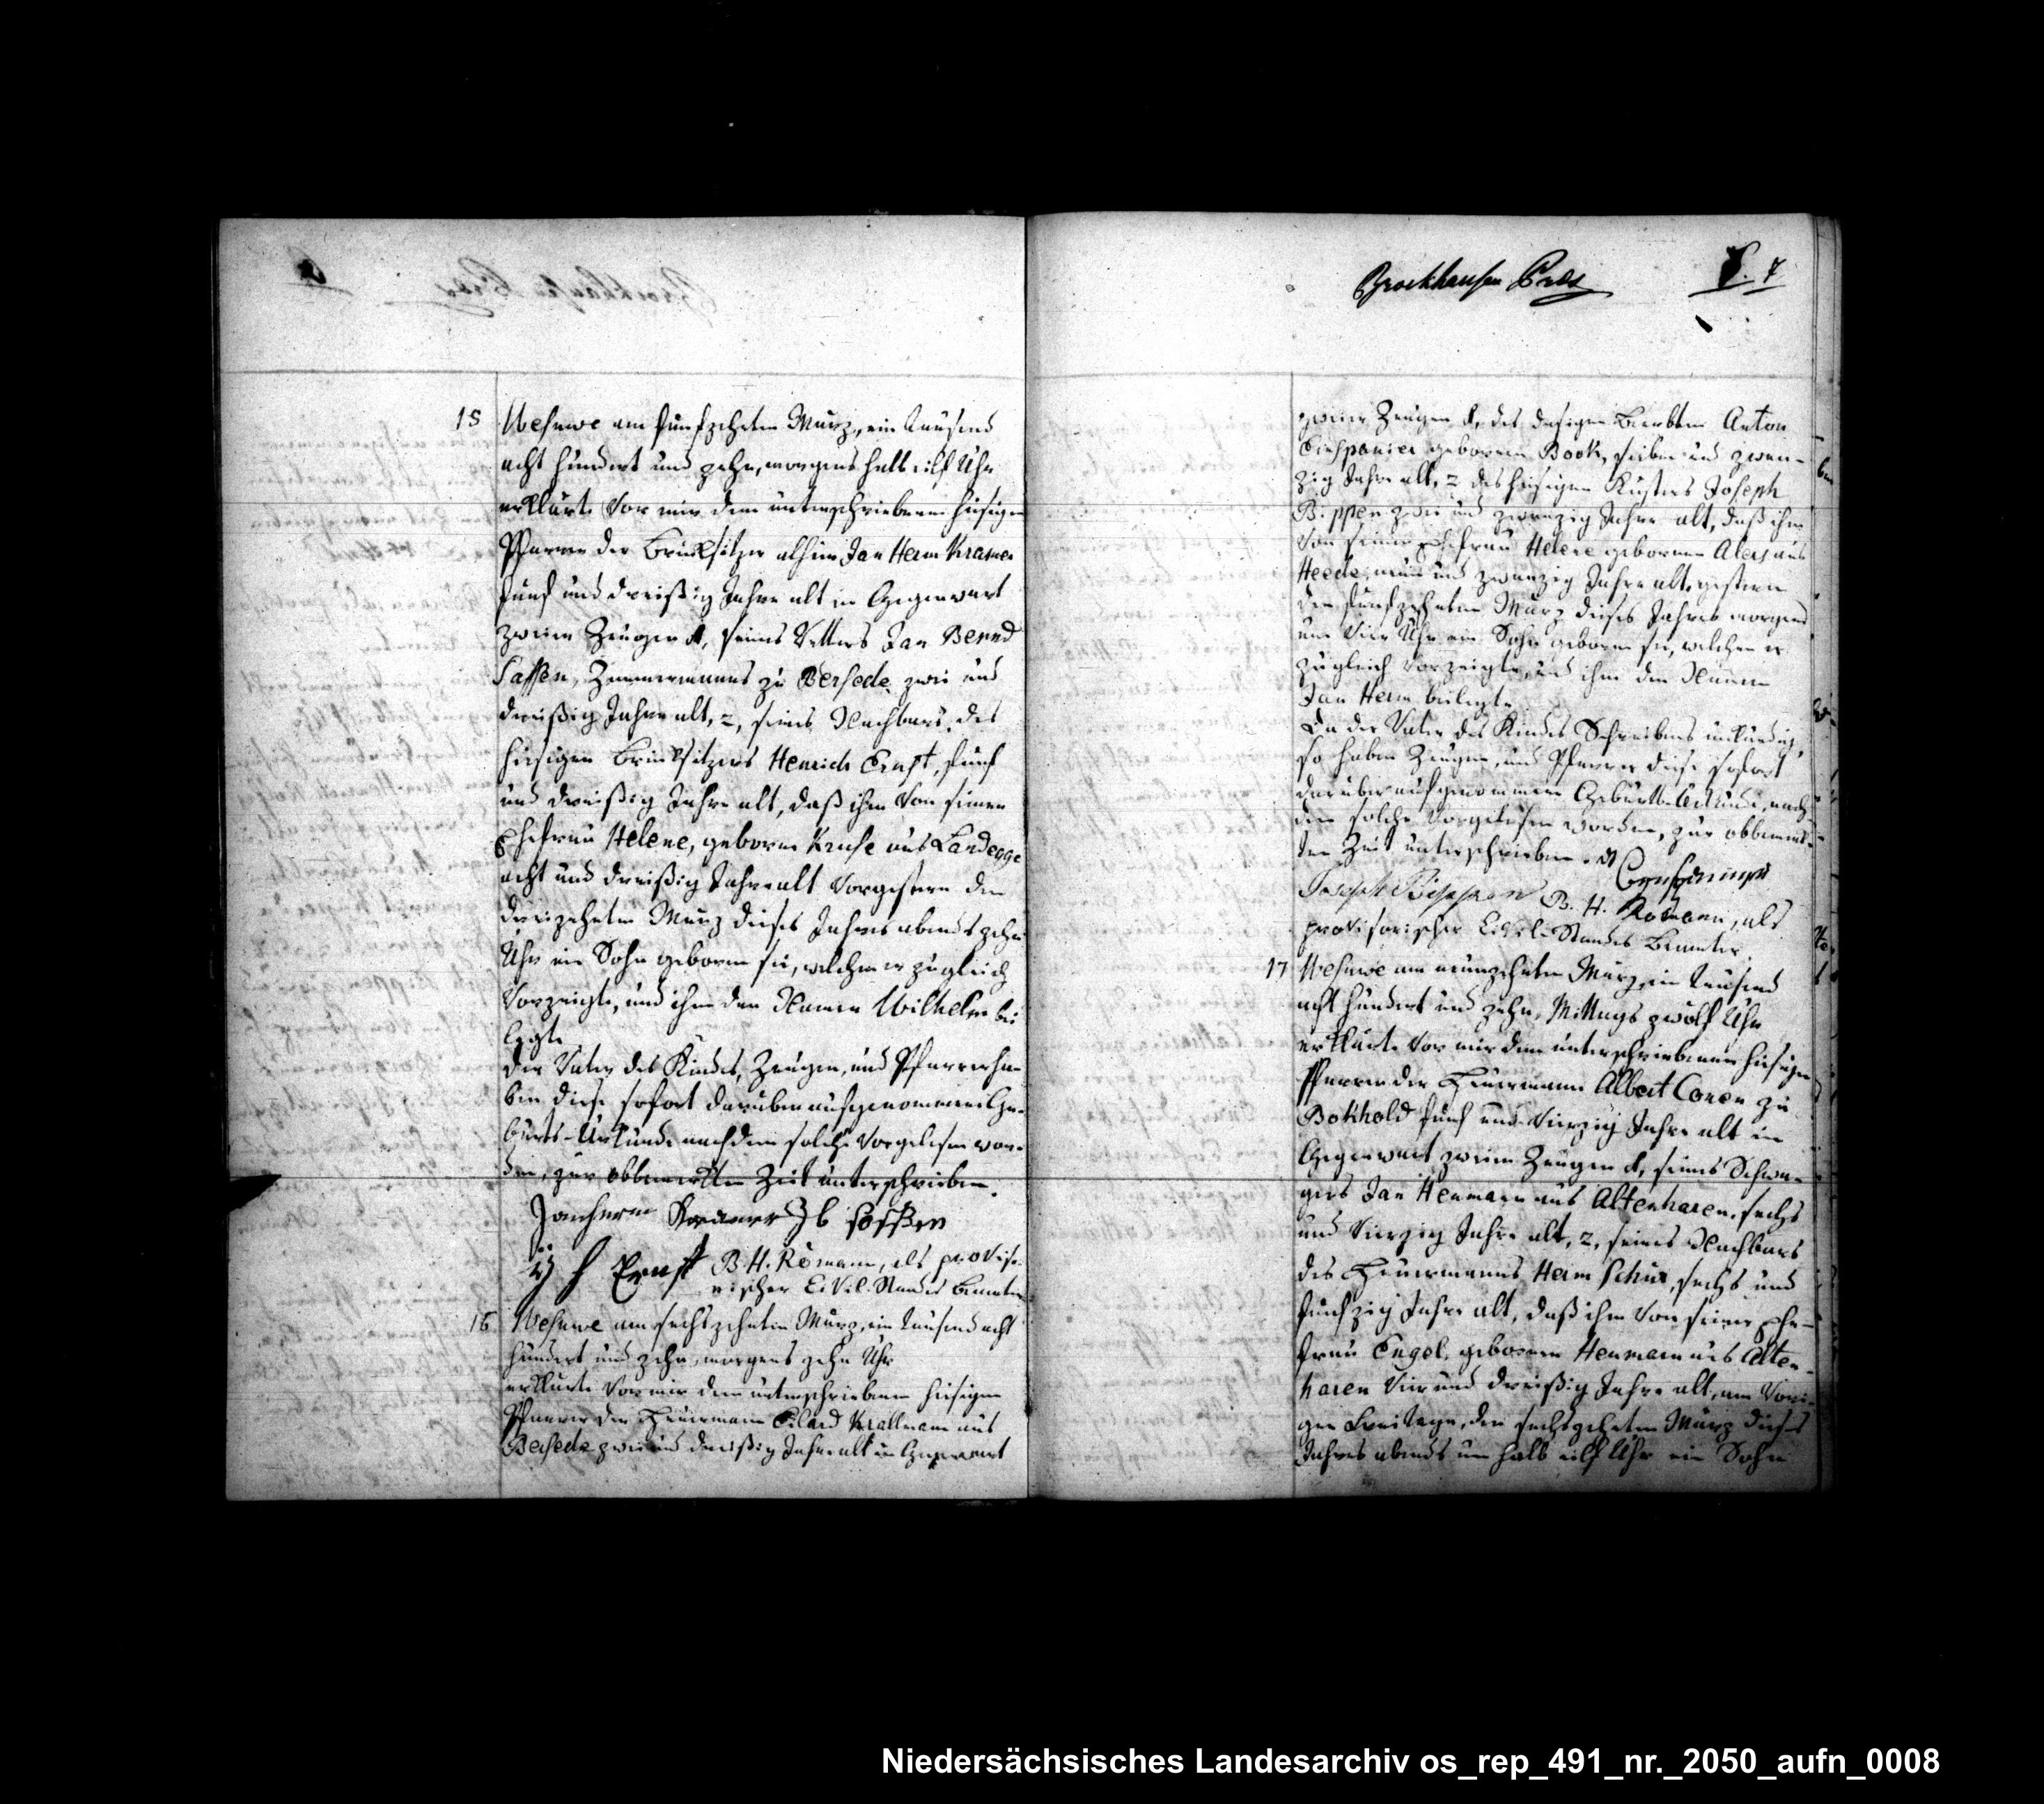 Brockhausen Prds
7
15
Wesuwe am fünfzehnten März, ein tausend
acht hundert und zehn, morgens halb eilf Uhr
erklärte vor mir dem unterschriebenen hiesigen
Pfarrer der Brinksitzer alhier Jan Herm Kramer
fünf und dreißig Jahre alt in Gegenwart
zweier Zeugen 1, seines Vetters Jan Bernd
Saßen, Zimmermanns zu Versede zwei und
dreißig Jahre alt, 2, seines Nachbars, des
hiesigen Brinksitzers Henrich Ernst, fünf
und dreißig Jahre alt, daß ihm von seiner
Ehefrau Helene, geborne Kruse aus Landegge
acht und dreißig Jahre alt vorgestern den
dreizehnten März dieses Jahres abends zehn
Uhr ein Sohn geboren sei, welchen er zugleich
vorzeigte, und ihm den Namen Wilhelm bei
legte
Der Vater des Kindes, Zeugen, und Pfarrer ha-
ben diese sofort darüber aufgenommene Ge-
burts-Urkunde nachdem solche vorgelesen wor-
den, zur obbemerkten Zeit unterschrieben.
Janherm Kramer Jb soßen
H Ernst B. H. Römann, als proviso-
rischer Civil-Standes Beamter
16
Wesuwe am sechszehnten März, ein tausend acht
hundert und zehn, morgens zehn Uhr
erklärte vor mir dem unterschriebenen hiesigen
Pfarrer der Heuermann Eilard Krallmann aus
Versede zwei und dreißig Jahre alt in Gegenwart
zweier Zeugen 1, des dasigen Anton
geborenen Book, sieben und zwan-
zig Jahre alt, 2 des hiesigen Küsters Joseph
Bippen zwei und zwanzig Jahre alt, daß ihm
von seiner Ehefrau Helene geborenen Alers aus
Heede, neun und zwanzig Jahre alt, gestern
den fünfzehnten März dieses Jahres morgens
um vier Uhr ein Sohn geboren sei, welchen er
zugleich vorzeigte, und ihm den Namen
Jan Herm beilegte
Da der Vater des Kindes Schreibens unkundig,
so haben Zeugen, und Pfarrer diese sofort
darüber aufgenommene Geburts-Urkunde, nach-
dem solche vorgelesen worden, zur obbemerk-
ten Zeit unterschrieben. A
Joseph Bippen B. H. Römann, als
provisorischer Civil-Standes Beamter
17
Wesuwe am neunzehnten März, ein tausend
acht hundert und zehn, Mittags zwölf Uhr
erklärte vor mir dem unterschriebenen hiesigen
Pfarrer der Heuermann Albert Conen zu
Bokhold fünf und vierzig Jahre alt in
Gegenwart zweier Zeugen 1, seines Schwa-
gers Jan Henmann aus Altenharen, sechs
und vierzig Jahre alt, 2, seines Nachbars
des Heuermanns Herm, sechs und
fünfzig Jahre alt, daß ihm von seiner Ehe-
frau Engel, geborenen Henmann aus Alten-
haren vier und dreißig Jahre alt, am vori-
gen Freitage, den sechszehnten März dieses
Jahres abends um halb eilf Uhr ein Sohn
Niedersächsisches Landesarchiv os_rep_491_nr._2050_aufn_0008